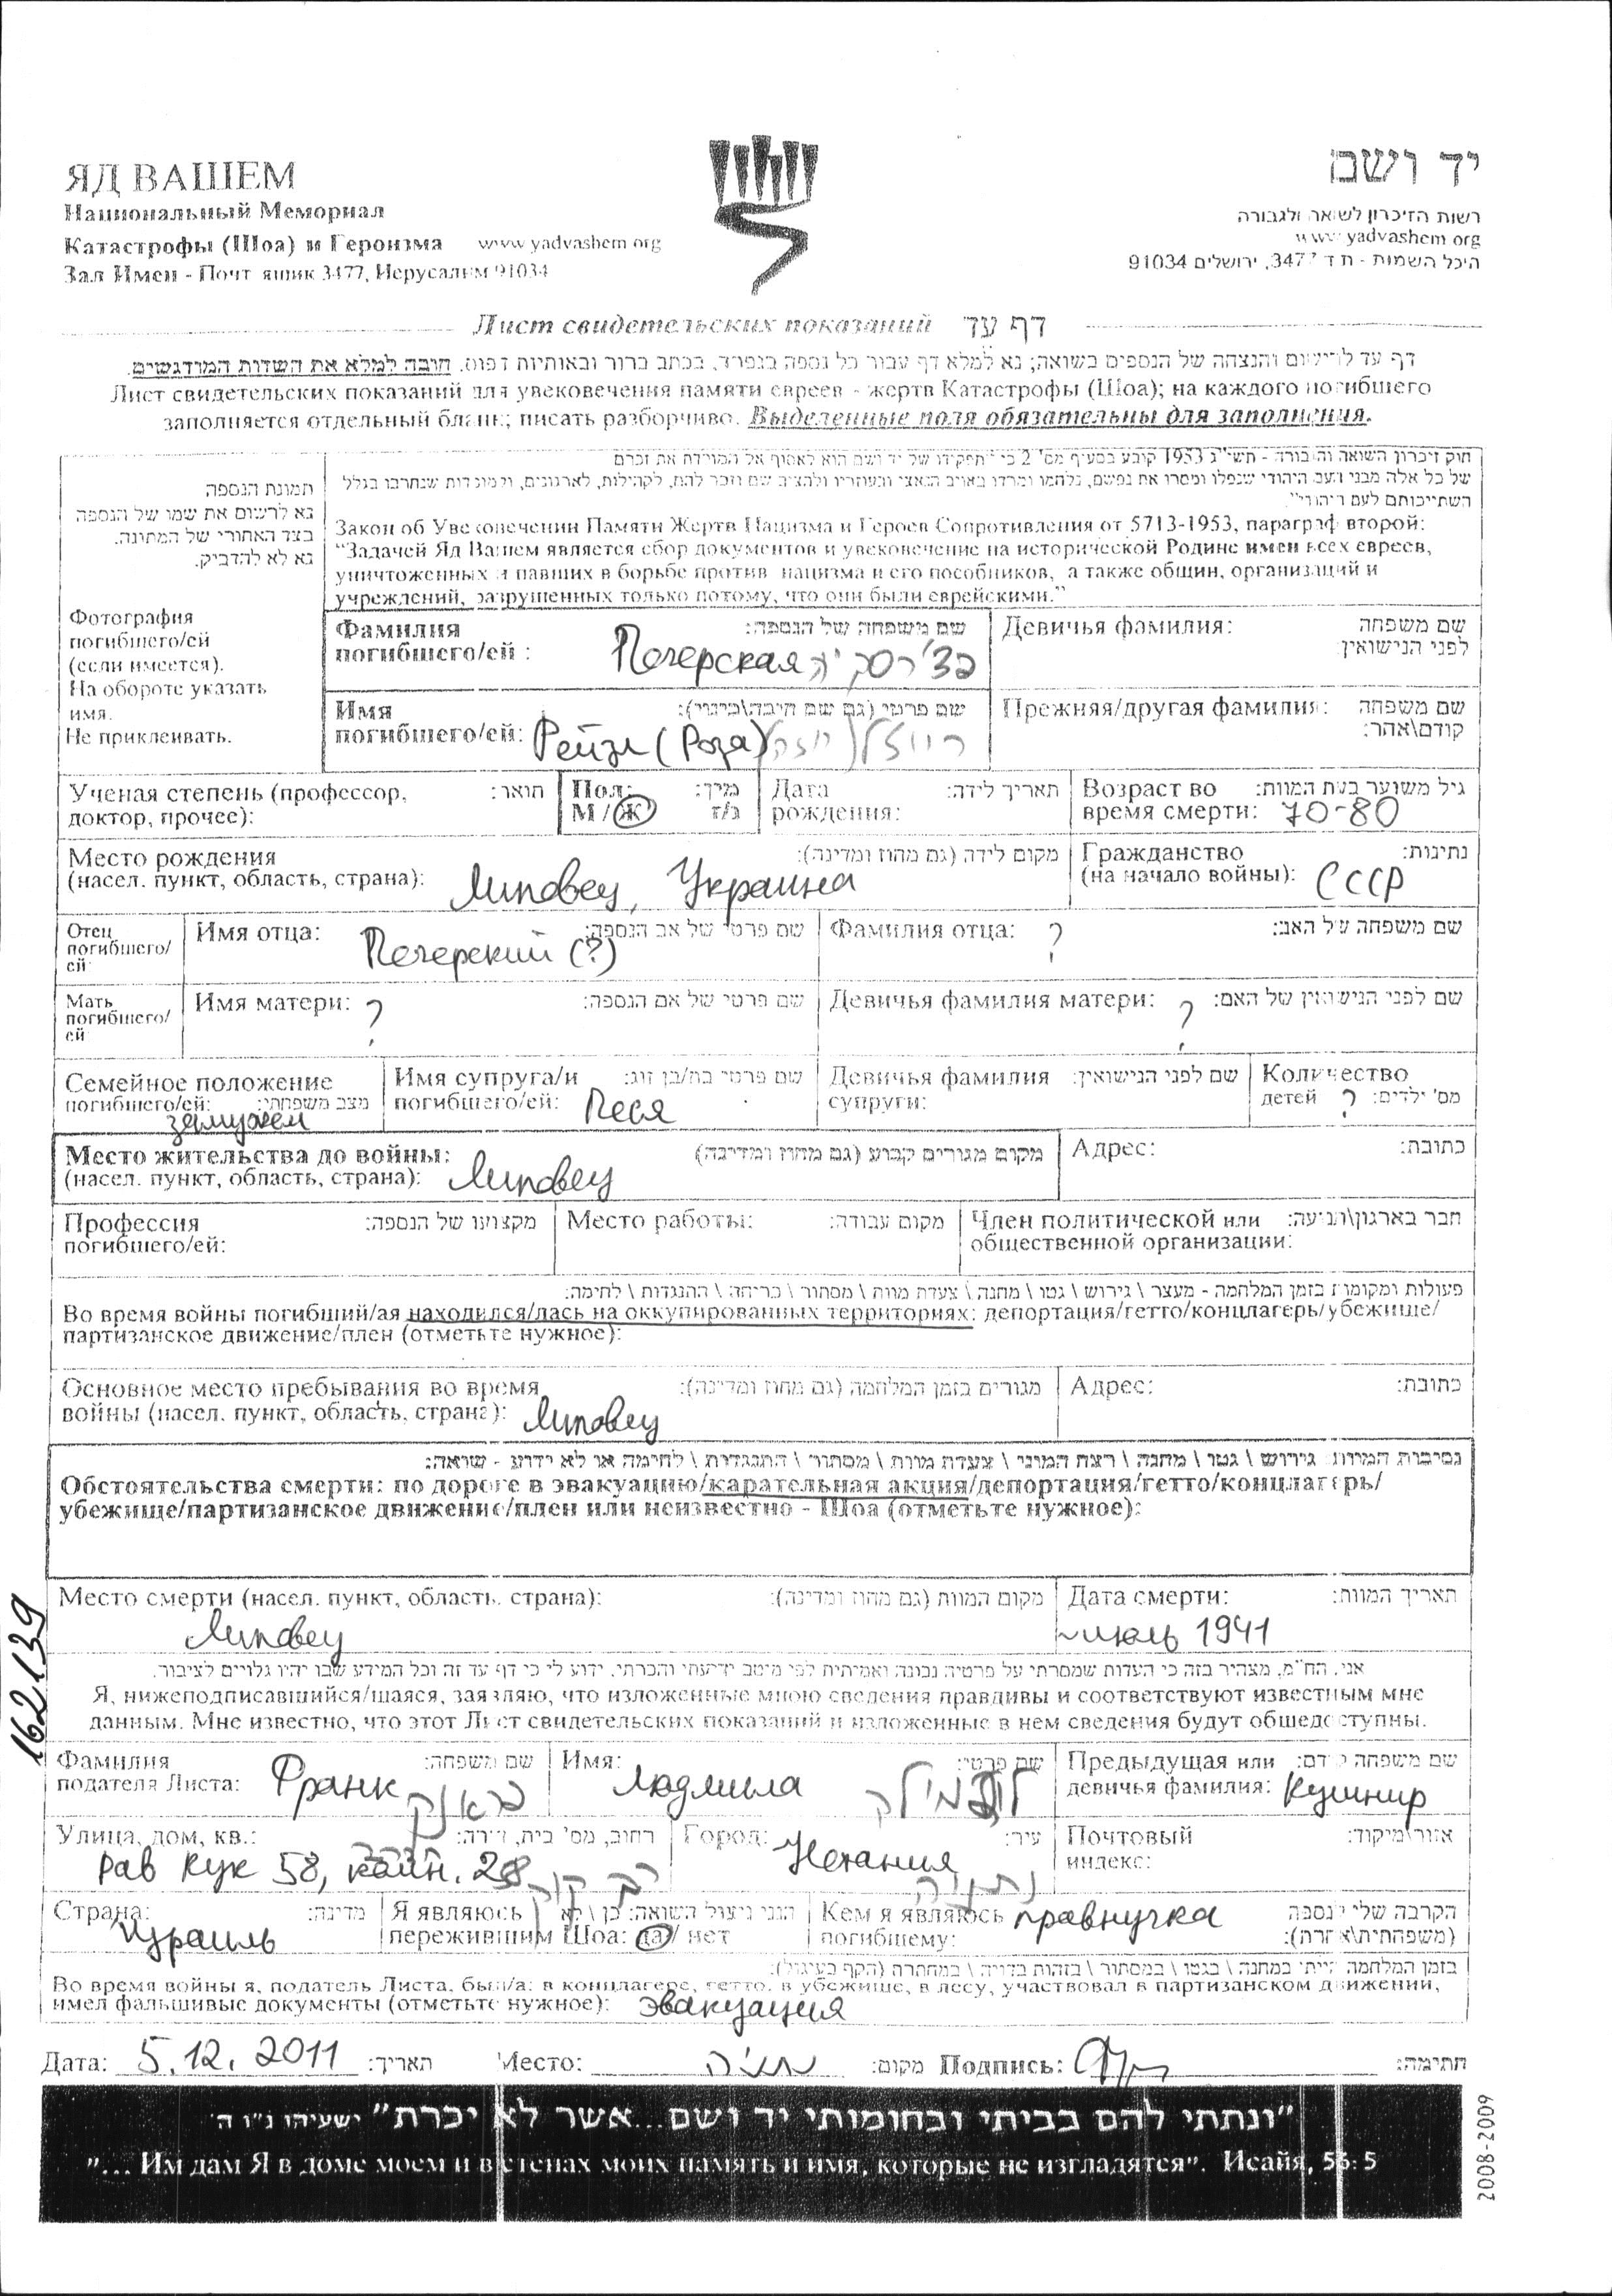 ЯД ВАШЕМ
Национальный Мемориал
Катастрофы (Шоа) и Героизма www yadvashem org
Зал Имен - Почт ящик 3477, Иерусалим 91034
יד ושם
רשות הזיכרון לשואה ולגבורה
www yadvashem org
היכל השמות - ת ד 3477, ירושלים 91034
Лист свидетельских показаний דף עד
דף עד לרישום והנצחה של הנספים בשואה; נא למלא דף עבור כל נספה בנפרד, בכתב ברור ובאותיות דפוס. חובה למלא את השדות המודגשים.
Лист свидетельских показаний для увековечения памяти евреев - жертв Катастрофы (Шоа); на каждого погибшего
заполняется отдельный бланк; писать разборчиво. Выделенные поля обязательны для заполнения.
חוק זיכרון השואה והגבורה - תשי"ג 1953 קובע בסעיף מס' 2 כי "תפקידו של יד ושם הוא לאסוף אל המולדת את זכרם
של כל אלה מבני העם היהודי שנפלו ומסרו את נפשם, נלחמו ומרדו באויב הנאצי ובעוזריו ולהציב שם וזכר להם, לקהילות, לארגונים, ולמוסדות שנחרבו בגלל
השתייכותם לעם היהודי".
Закон об Увековечении Памяти Жертв Нацизма и Героев Сопротивления от 5713-1953, параграф второй:
"Задачей Яд Вашем является сбор документов и увековечение на исторической Родине имен всех евреев,
уничтоженных и павших в борьбе против нацизма и его пособников, а также общин, организаций и
учреждений, разрушенных только потому, что они были еврейскими."
תמונת הנספה
נא לרשום את שמו של הנספה
בצד האחורי של התמונה.
נא לא להדביק.
Фотография
погибшего/ей
(если имеется).
На обороте указать
имя.
Не приклеивать.
Фамилия погибшего/ей : Печерская שם משפחה של הנספה: פצ'רסקיה
Девичья фамилия: שם משפחה לפני הנישואין:
Имя погибшего/ей: Рейзл (Роза) שם פרטי (גם שם חיבה\כינוי): רייזל (רוזה)
Прежняя/другая фамилия: שם משפחה קודם\אחר:
Ученая степень (профессор, доктор, прочее): תואר:
Пол: М / Ж מין: ז/נ
Дата рождения: תאריך לידה:
Возраст во время смерти: 70-80 גיל משוער בעת המוות:
Место рождения (насел. пункт, область, страна): Липовец, Украина מקום לידה (גם מחוז ומדינה):
Гражданство (на начало войны): СССР נתינות:
Отец погибшего/ей: Имя отца: Печерский (?) שם פרטי של אב הנספה:
Фамилия отца: ? שם משפחה של האב:
Мать погибшего/ей: Имя матери: ? שם פרטי של אם הנספה:
Девичья фамилия матери: ? שם לפני הנישואין של האם:
Семейное положение погибшего/ей: замужем מצב משפחתי:
Имя супруга/и погибшего/ей: Песя שם פרטי בת/בן זוג:
Девичья фамилия супруги: שם לפני הנישואין:
Количество детей ? מס' ילדים:
Место жительства до войны: (насел. пункт, область, страна): Липовец מקום מגורים קבוע (גם מחוז ומדינה)
Адрес: כתובת:
Профессия погибшего/ей: מקצועו של הנספה:
Место работы: מקום עבודה:
Член политической или общественной организации: חבר בארגון\תנועה:
פעולות ומקומות בזמן המלחמה - מעצר \ גירוש \ גטו \ מחנה \ צעדת מוות \ מסתור \ בריחה \ התנגדות \ לחימה:
Во время войны погибший/ая находился/лась на оккупированных территориях: депортация/гетто/концлагерь/убежище/
партизанское движение/плен (отметьте нужное):
Основное место пребывания во время войны (насел. пункт, область, страна): Липовец מגורים בזמן המלחמה (גם מחוז ומדינה):
Адрес: כתובת:
נסיבות המוות: גירוש \ גטו \ מחנה \ רצח המוני \ צעדת מוות \ מסתור \ התנגדות \ לחימה או לא ידוע - שואה:
Обстоятельства смерти: по дороге в эвакуацию/карательная акция/депортация/гетто/концлагерь/
убежище/партизанское движение/плен или неизвестно - Шоа (отметьте нужное):
Место смерти (насел. пункт, область, страна): Липовец מקום המוות (גם מחוז ומדינה):
Дата смерти: ~ июль 1941 תאריך המוות:
אני, הח"מ, מצהיר בזה כי העדות שמסרתי על פרטיה נכונה ואמיתית לפי מיטב ידיעתי והכרתי. ידוע לי כי דף עד זה וכל המידע שבו יהיו גלויים לציבור.
Я, нижеподписавшийся/шаяся, заявляю, что изложенные мною сведения правдивы и соответствуют известным мне
данным. Мне известно, что этот Лист свидетельских показаний и изложенные в нем сведения будут общедоступны.
Фамилия подателя Листа: Франк שם משפחה: פראנק
Имя: Людмила שם פרטי: לודמילה
Предыдущая или девичья фамилия: Кушнир שם משפחה קודם:
Улица, дом, кв.: Рав Кук 58, 28 רחוב, מס' בית, דירה: רב קוק
Город: Нетания עיר: נתניה
Почтовый индекс: אזור\מיקוד:
Страна: Израиль מדינה:
Я являюсь пережившим Шоа: да/ нет הנני ניצול השואה: כן \ לא
Кем я являюсь погибшему: правнучка הקרבה שלי לנספה (משפחתית\אחרת):
בזמן המלחמה הייתי במחנה \ בגטו \ במסתור \ בזהות בדויה \ במחתרת (הקף בעיגול):
Во время войны я, податель Листа, был/а: в концлагере, гетто, в убежище, в лесу, участвовал в партизанском движении,
имел фальшивые документы (отметьте нужное): эвакуация
Дата: 5.12.2011 תאריך: Место: נתניה מקום: Подпись: חתימה:
"ונתתי להם בביתי ובחומותי יד ושם...אשר לא יכרת" ישעיהו נ"ו ה'
"... Им дам Я в доме моем и в стенах моих память и имя, которые не изгладятся". Исайя, 56: 5
162139
2008-2009